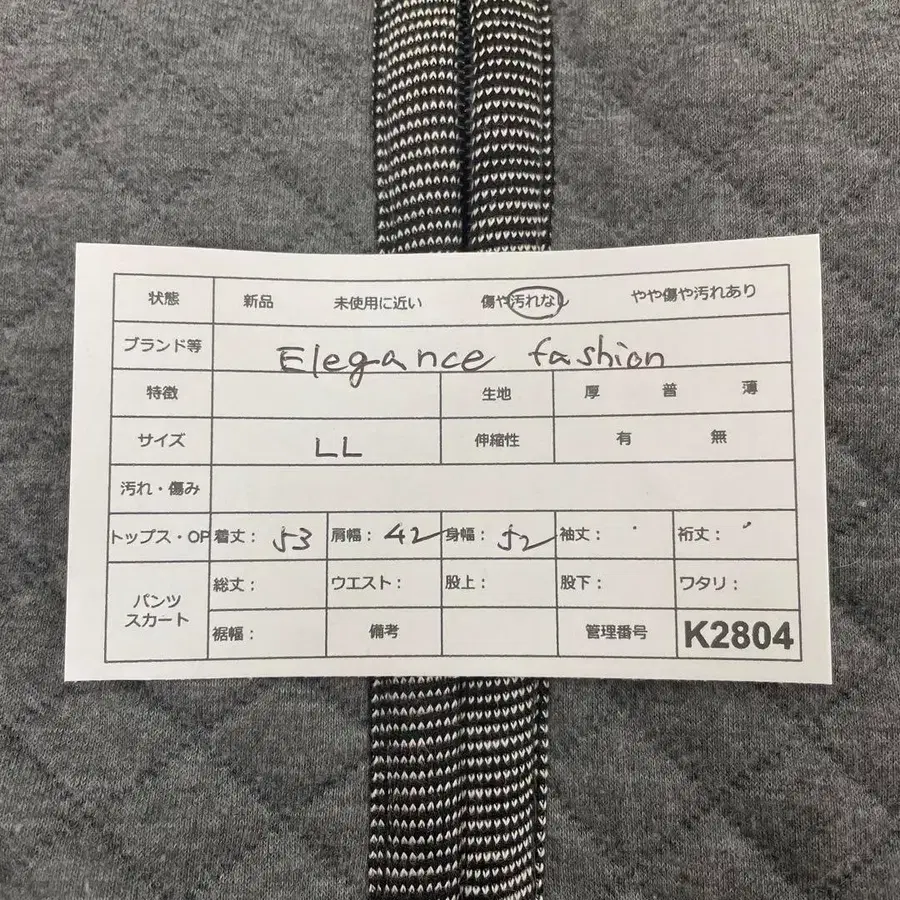 状態 新品 未使用に近い 傷や汚れなし やや傷や汚れあり
ブランド等 Elegance fashion
特徴 生地 厚 普 薄
サイズ LL 伸縮性 有 無
汚れ・傷み
トップス・OP 着丈： 53 肩幅： 42 身幅： 52 袖丈： 裄丈：
パンツ スカート 総丈： ウエスト： 股上： 股下： ワタリ：
裾幅： 備考 管理番号 K2804